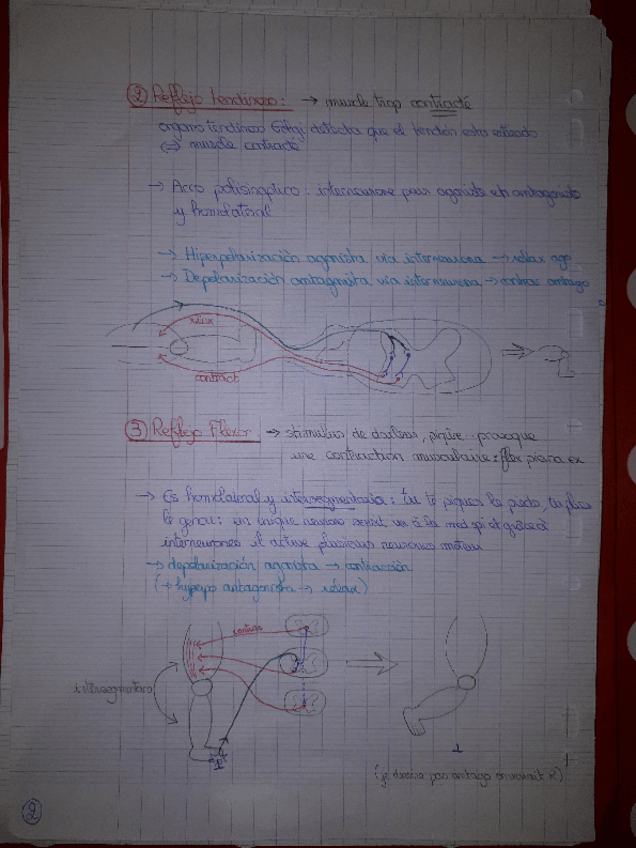 ② Reflejo tendinoso: → muscle trop contracté
organo tendinoso Golgi detecta que el tendón esta estirado
(⇒ muscle contracté
→ Arco polisinaptico: interneurone pour agoniste et antagoniste
y homolateral
→ Hiperpolarización agonista via interneurona → relax ago
→ Depolarización antagonista via interneurona → contrac antago
relax
contract
③ Reflejo Flexor → stimulus de douleur, piqûre provoque
une contraction musculaire: flex pierna ex
→ Es homolateral y intersegmentario: tu te piques le pied, tu flex
le genou: un unique neurone sensit va à la moel épi et grâce à
interneurones il active plusieurs neurones moteurs
→ depolarización agonista → contracción
(→ hyperpo antagonista → relax)
contrac
intersegmentario
(je dessine pas antago
②